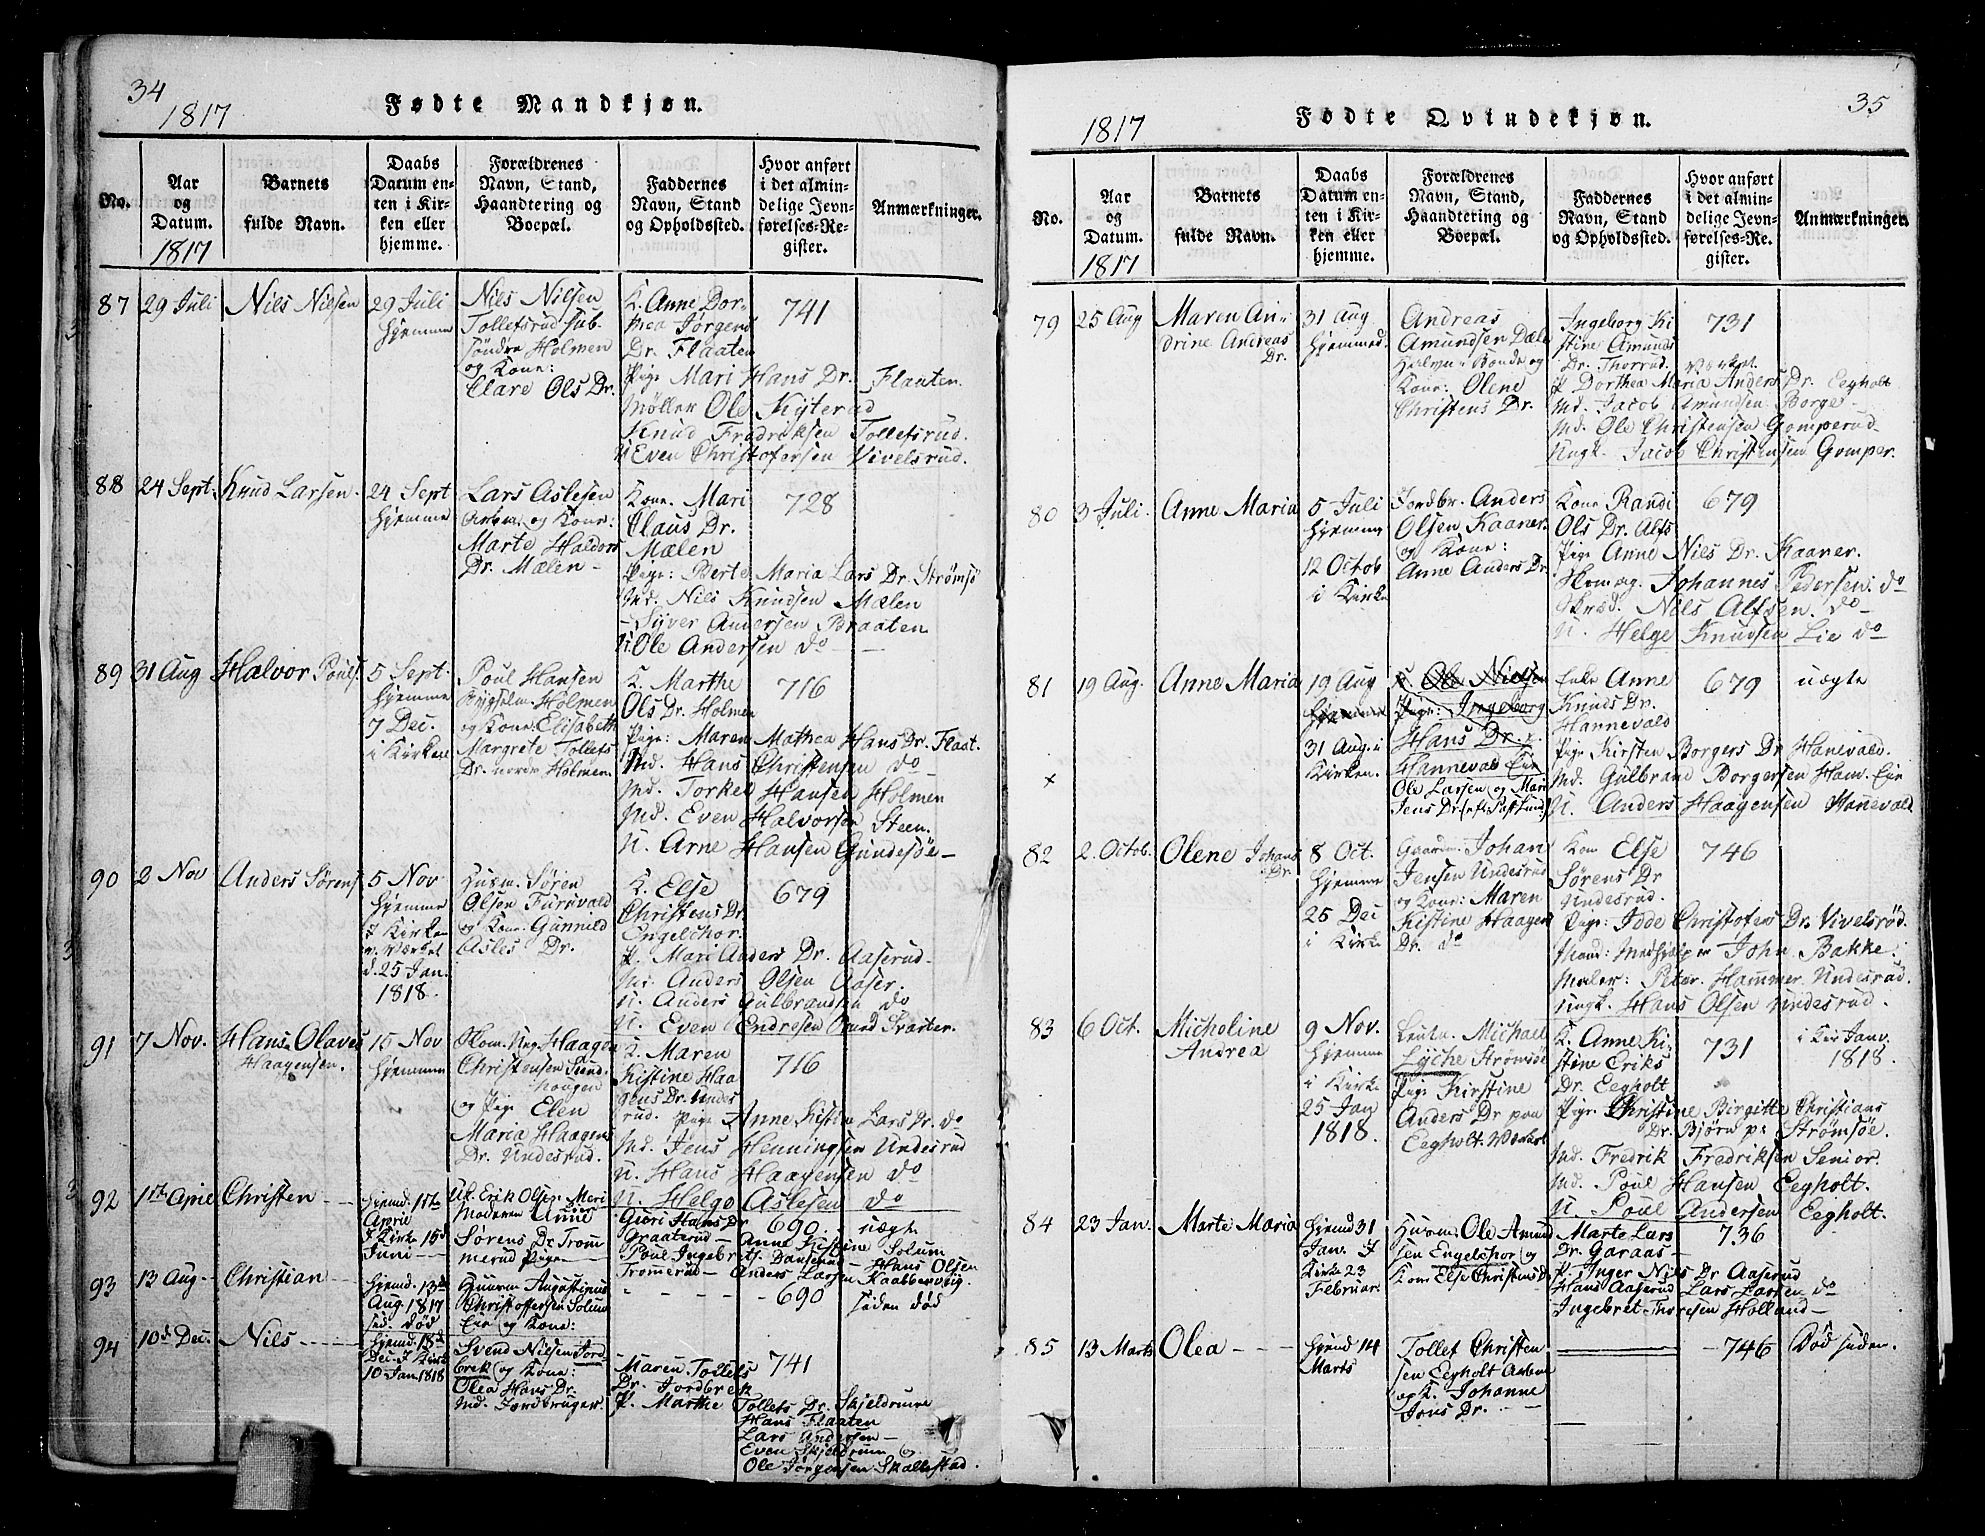 34
1817
Fødte Mandkjøn.
No.
Aar
og
Datum.
1817
Barnets
fulde Navn.
Daabs
Datum en-
ten i Kir-
ken eller
hjemme.
Forældrenes
Navn, Stand,
Haandtering og
Boepæl.
Faddernes
Navn, Stand
og Opholdssted.
Hvor anført
i det almin-
delige Jevn-
førelses-Re-
gister.
Anmærkninger.
87
29 Juli
Nils Nilsen
29 Juli
hjemme
Nils Nilsen
Tollefsrud
söndre Holmen
og Kone:
Clare Ols Dr.
K. Anne Dor-
thea Jørgens
Dr. Flaaten
Pige Mari Hans Dr. Flaaten.
Møller Ole Kyterud
Knud Fredriksen Tollefsrud.
U. Even Christofersen Vivelsrud.
741
88
24 Sept.
Knud Larsen
24 Sept
hjemme
Lars Aslesen
og Kone:
Marte Haldors
Dr. Mælen
Kone. Mari
Claus Dr.
Mælen
Pige: Berte Maria Lars Dr. Strømsö
Md. Nils Knudsen Mælen
- Syver Andersen Braaten
U. Ole Andersen do
728
89
31 Aug
Halvor Pouls.
5 Sept.
hjemme
7 Dec.
i Kirken
Poul Hansen
Holmen
og Kone: Elisabeth
Margrete Tollefs
Dr. nordre Holmen.
K. Marthe
Ols Dr. Holmen
Pige: Maren Mathea Hans Dr. Flaat.
Md. Hans Christensen do
Md. Torkel Hansen Holmen
Md. Even Halvorsen Steen.
U. Arne Hansen Gundesøe
716
90
2 Nov
Anders Sørens
5 Nov
hjemme
i Kirke
v. Værket
d. 25 Jan.
1818.
Husm. Søren
Olsen Furuvald
og Kone Gunnild
Asles Dr.
K. Else
Christens Dr.
Engelchor.
P. Mari Anders Dr. Aaserud
Anders Olsen Aaser.
U. Anders Gulbrandsen do
U. Even Endresen
679
91
7 Nov.
Hans Olaves
Haagensen.
15 Nov
hjemme
Skom. Ung. Haagen
Christensen
og Pige Elen
Maria Haagens
Dr. Undesrud.
K. Maren
Kistine Haa
gens Dr. Undes
rud. Pige Anne Kistine Lars Dr. do
Md. Jens Henningsen Undesrud
U. Hans Haagensen do
U. Helge Aslesen do
716
92
Christen
Aprili
i Kirke 15d
Juni
Erik Olsen
Moderen Anne
Sørens Dr Trom
merud Pige
Guri Hans Dr
Graaterud
Poul Ingebretf.
Tromerud
690.
Anne Kistine Solum
Hans Olsen
Anders Larsen Kaabbervig
uægte
93
13 Aug
Christian
hjemd. 13d
Aug. 1817
Augustinus
Christoffersen Solum
Eie og Kone:
690
siden död
94
10d Dec.
Nils
hjemd. 18d
Dec. I Kirk
10 Jan. 1818
Svend Nilsen Jord-
brek og Kone:
Olea Hans Dr.
Md. Jordbruger
Maren Tollefs
Dr. Jordbrek
P. Marthe Tollefs Dr. Skjeldrum
Hans Flaaten
Lars Andersen
Even Skjeldrum og
Ole Jörgensen Skallestad
741
1817
Fødte Qvindekjøn.
35
No.
Aar
og
Datum.
1817
Barnets
fulde Navn.
Daabs
Datum en-
ten i Kir-
ken eller
hjemme.
Forældrenes
Navn, Stand,
Haandtering og
Boepæl.
Faddernes
Navn, Stand
og Opholdssted.
Hvor anført
i det almin-
delige Jevn-
førelses-Re-
gister.
Anmærkninger.
79
25 Aug
Maren An-
drine Andreas
Dr.
31 Aug
hjemmed.
Andreas
Amundsen Dæle
Bonde og
Kone: Olene
Christens Dr.
Ingeborg Ki
stine Amunds
Dr. Thorrud.
P Dorthea Maria Anders Dr. Eegholt
Md. Jacob Amundsen Borge
Md. Ole Christensen Gomperud
Ungk. Jacob Christensen Gomper.
731
80
3 Juli.
Anne Maria
5 Juli
hjemme
12 Octob
i Kirke
Jordbr. Anders
Olsen Kaaner.
og Kone:
Anne Anders Dr
Kone Randi
Ols Dr. Alfs
Pige Anne Nils Dr. Kaaner.
Skomag. Johannes Pedersen. do
Skræd. Nils Alfsen. do
U. Helge Knudsen Lie do
679
81
19 Aug.
Anne Maria
19 Aug
hjemme
31 Aug. i
Kirken.
Ole Nielsen
Pige: Ingeborg
Hans Dr.
Hannevald Eie
Ole Larsen og Mari
Jens Dr.
Enke Anne
Knuds Dr.
Hannevald
Pige Kirsten Borgers Dr Hanevald.
Md. Gulbrand Borgersen Ham. Eie
U. Anders Haagensen Hanevald
679
uægte
82
2. Octob.
Olene Johans
Dr.
8 Oct.
hjemme
25 Dec
i Kirke
Gaardm. Johan
Jensen Undesrud
og Kone: Maren
Kistine Haagens
Dr. do
Kone Else
Sørens Dr
Undesrud.
Pige: Idde Christofers Dr. Vivelsrød.
Mand: Medhjelper John Bakke.
Maler: Peter Hammer Undesrud.
Ungk. Hans Olsen Undesrud.
746
83
6 Oct.
Micholine
Andrea
9 Nov.
hjemme
i Kirke
25 Jan
1818.
Leutn. Michael
Lyche Strømsøe
Pige Kirstine
Anders Dr paa
Eegholt. Værket
K. Anne Ki-
stine Eriks
Dr. Eegholt
Pige. Christine Birgitte Christians
Dr. Bjørn pr Strømsøe.
Md. Fredrik Fredriksen Senior.
Md. Poul Hansen Eegholt.
U. Poul Andersen Eegholt.
731
i Kir Janv.
1818.
84
23 Jan.
Marte Maria
hjemd 31
Jan. I
Kirke 23
Februar.
Husm: Ole Amund
sen Engelchor og
Kone Else Christens D.
Marte Lars
Dr. Garaas
P. Inger Nils Dr Aaserud
Hans Aaserud Lars Larsen do
Ingebret Thoresen Holland
736
85
13 Marts
Olea
hjemd 14
Marts
Tollef Christen
sen Eegholt
og K. Johanne
Jons Dr.
746
Död siden.